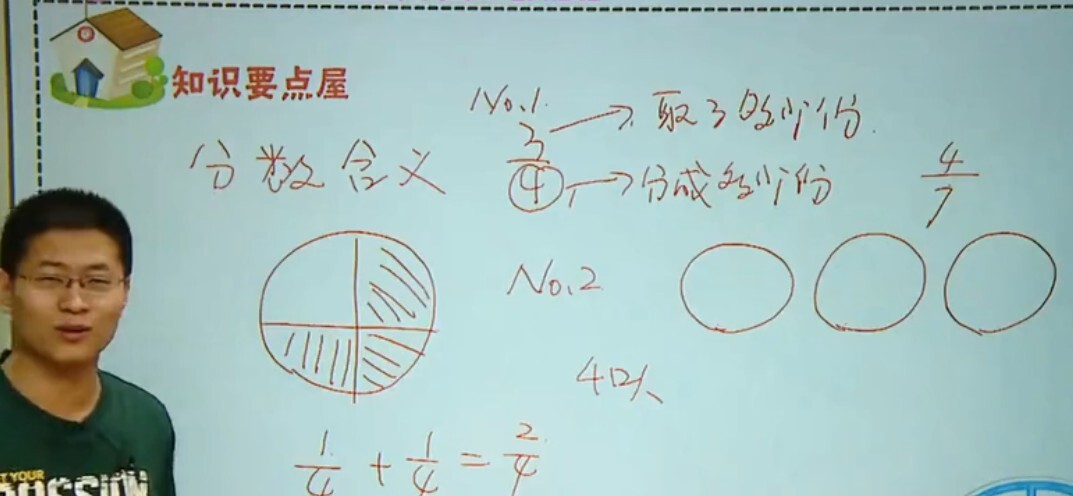 知识要点屋
No.1
3/4
取了多少份
分成多少份
4/7
分数含义
No.2
4口人
1/4 + 1/4 = 2/4
T YOUR